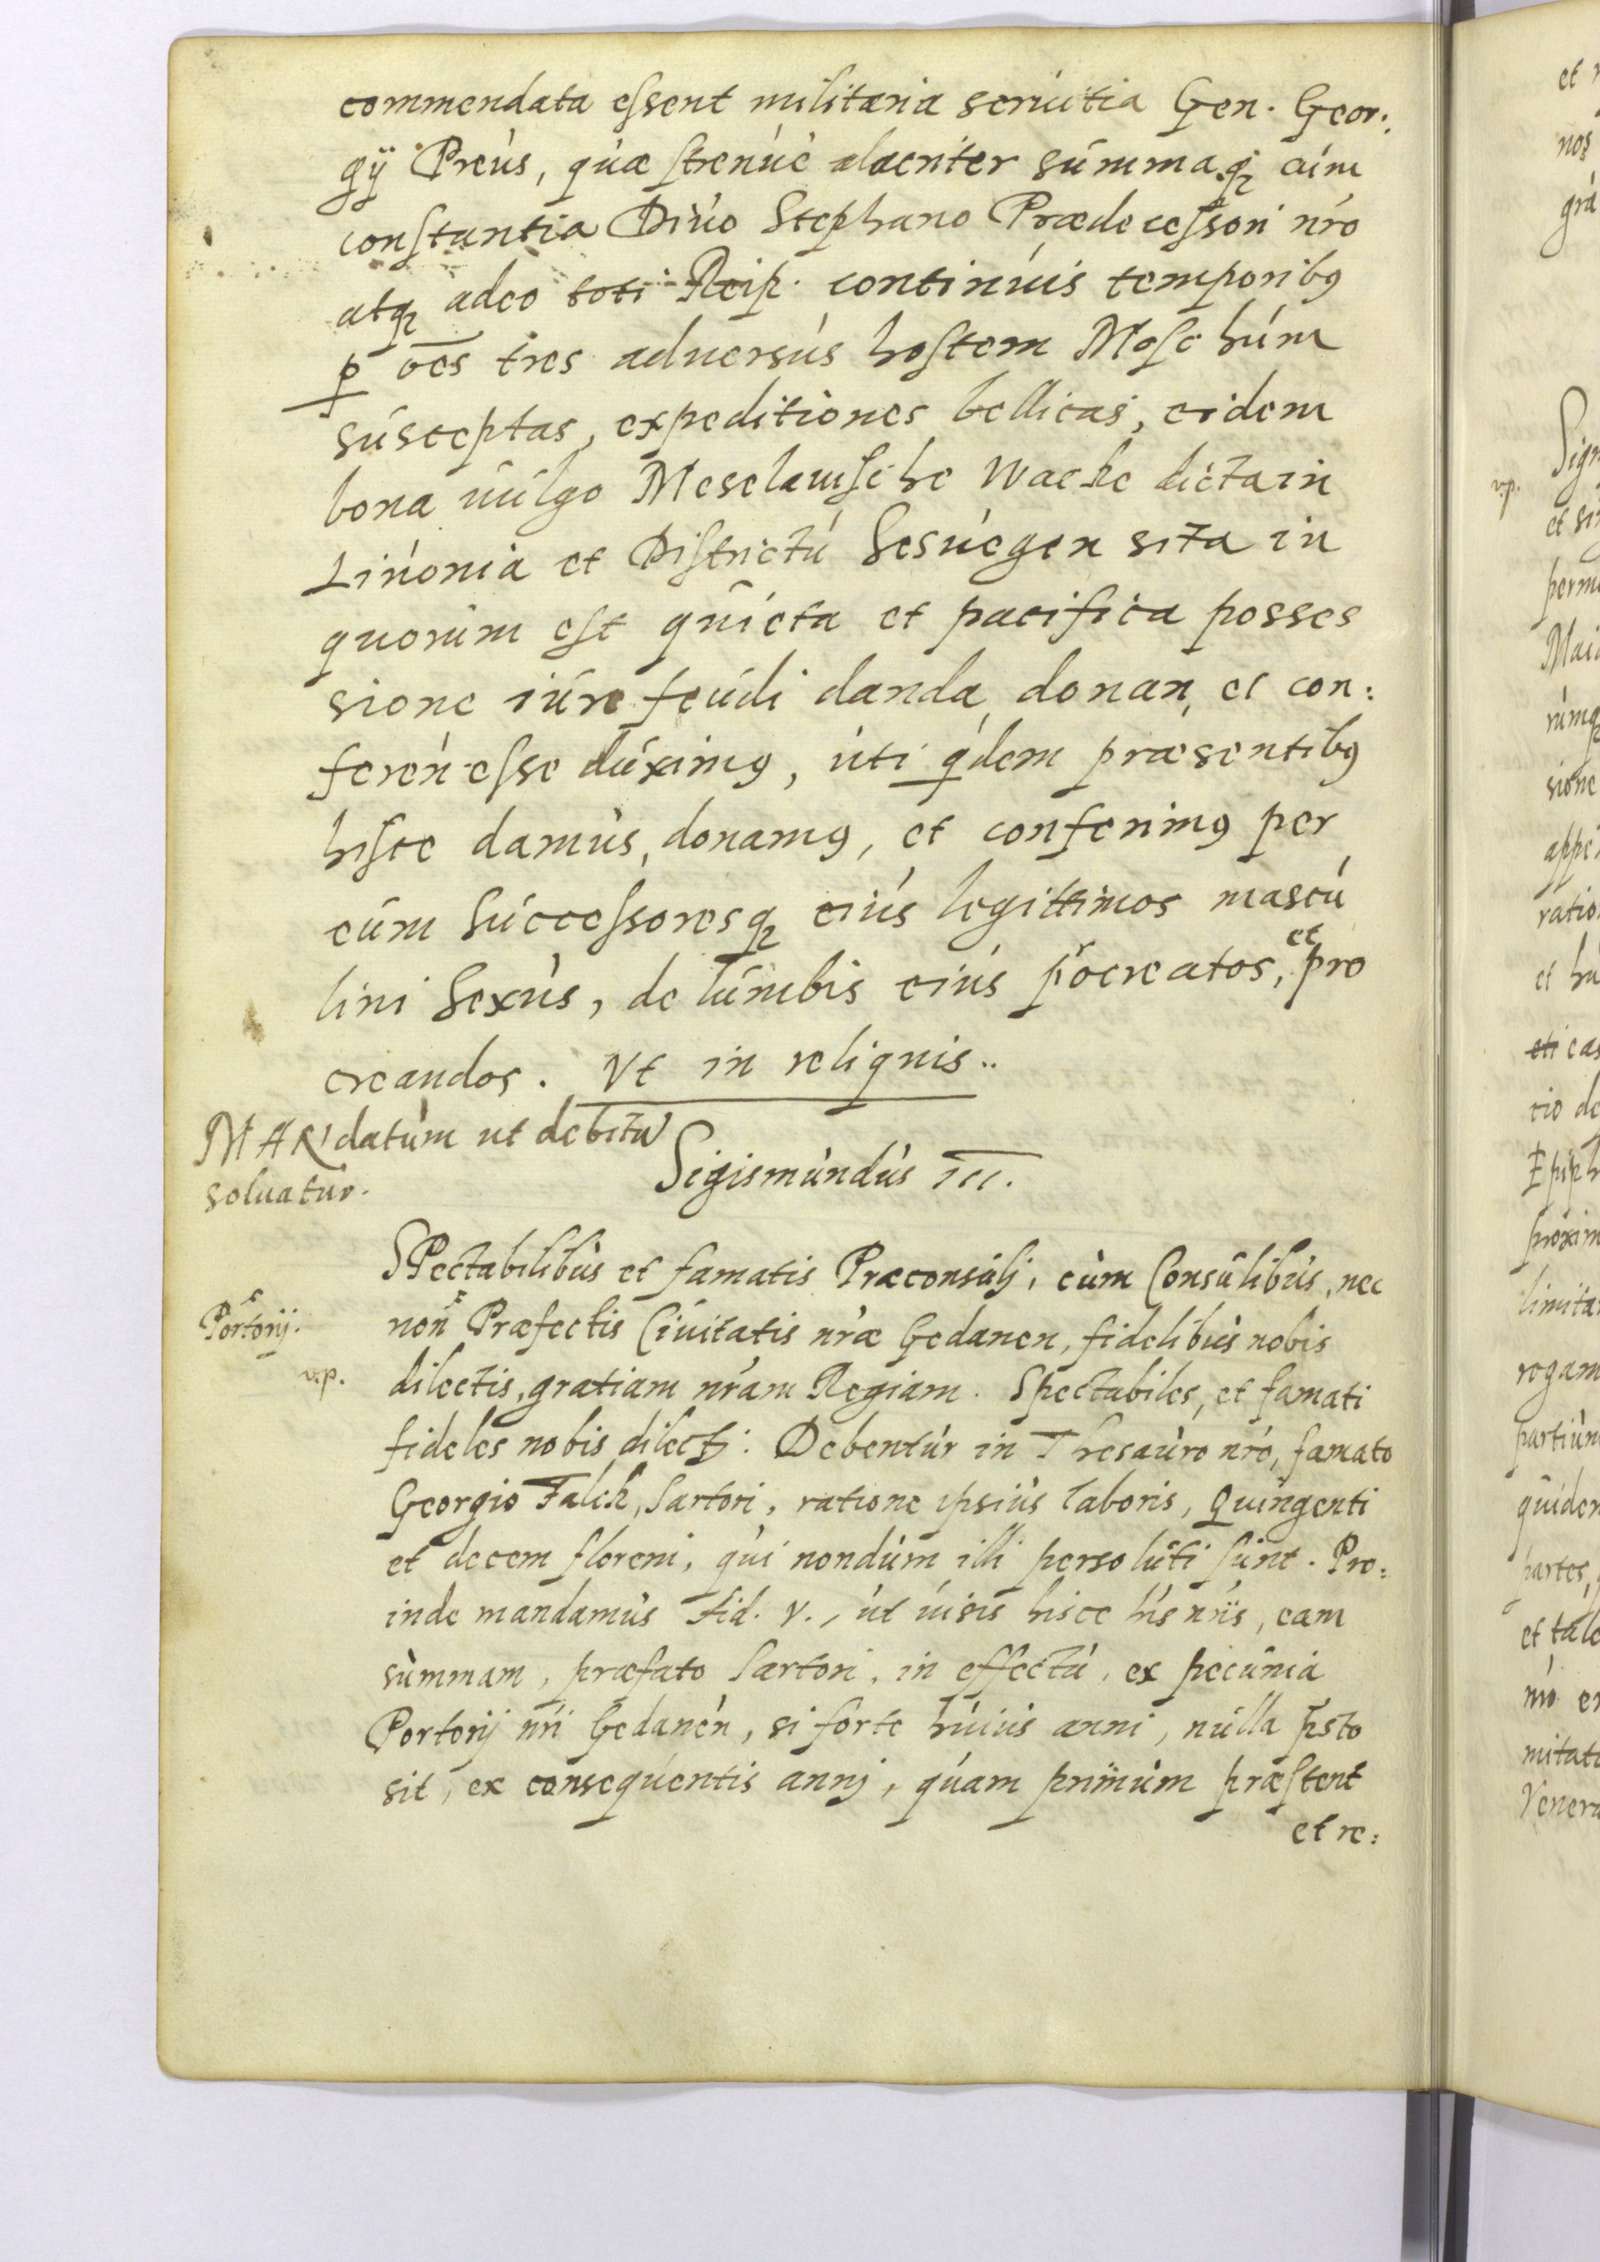 commendata essent militaria seruitia Gen. Geor:
gÿ Preus, quæ strenuè alacriter summaq; cum
constantia Diuo Stephano Prædecessori nro
atq; adeo toti Reip. continuis temporibꝰ
ꝑ oēs tres aduersus hostem Moschum
susceptas, expeditiones bellicas, eidem
bona uulgo Meselauische Wacke dicta in
Liuonia et Districtu Sesuegen sita in
quorum est quieta et pacifica posses
sione iure feudi danda donan et con:
feren esse duximꝰ, uti qdem præsentibꝰ
hisce damus, donamꝰ, et conferimꝰ per
eum Successoresq; eius legittimos mascu
lini Sexus, de lumbis eius procreatos, et pro
creandos. Vt in reliquis..
MANdatum ut debitu
soluatur.
Sigismundus III.
SPectabilibus et famatis Præconsulj, cum Consulibus, nec
Portorij.
non Præfectis Ciuitatis nræ Gedanen, fidelibus nobis
v.p.
dilectis, gratiam nram Regiam. Spectabiles, et famati
fideles nobis dilectj: Debentur in Thesauro nro, famato
Georgio Falck, Sartori, ratione ipsius laboris, Quingenti
et decem floreni, qui nondum illi persoluti sunt. Pro:
inde mandamus Fid. V., ut uisis hisce lris nris, eam
summam, præfato Sartori, in effectu, ex pecunia
Portorij nri Gedanen, si forte huius anni, nulla psto
sit, ex consequentis annj, quam primum præstent
et re: